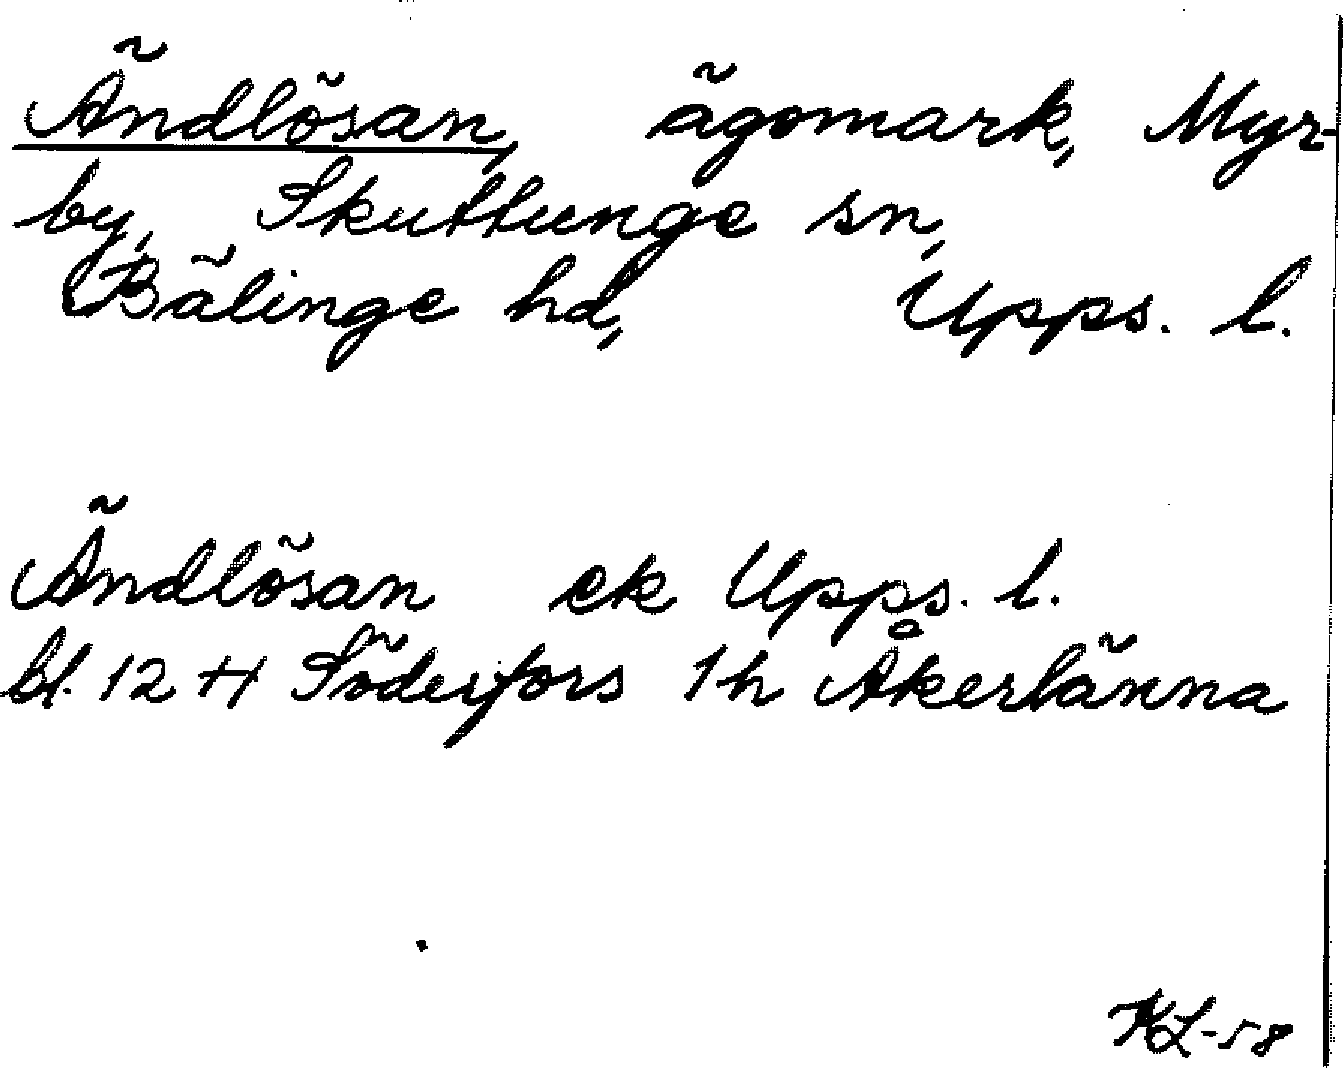 Ändlösan, ägomark, Myr-
by, Skuttunge sn,
Bälinge hd, Upps. l.
Ändlösan ek Upps. l.
bl. 12 H Söderfors 1h Åkerlänna
KL-58